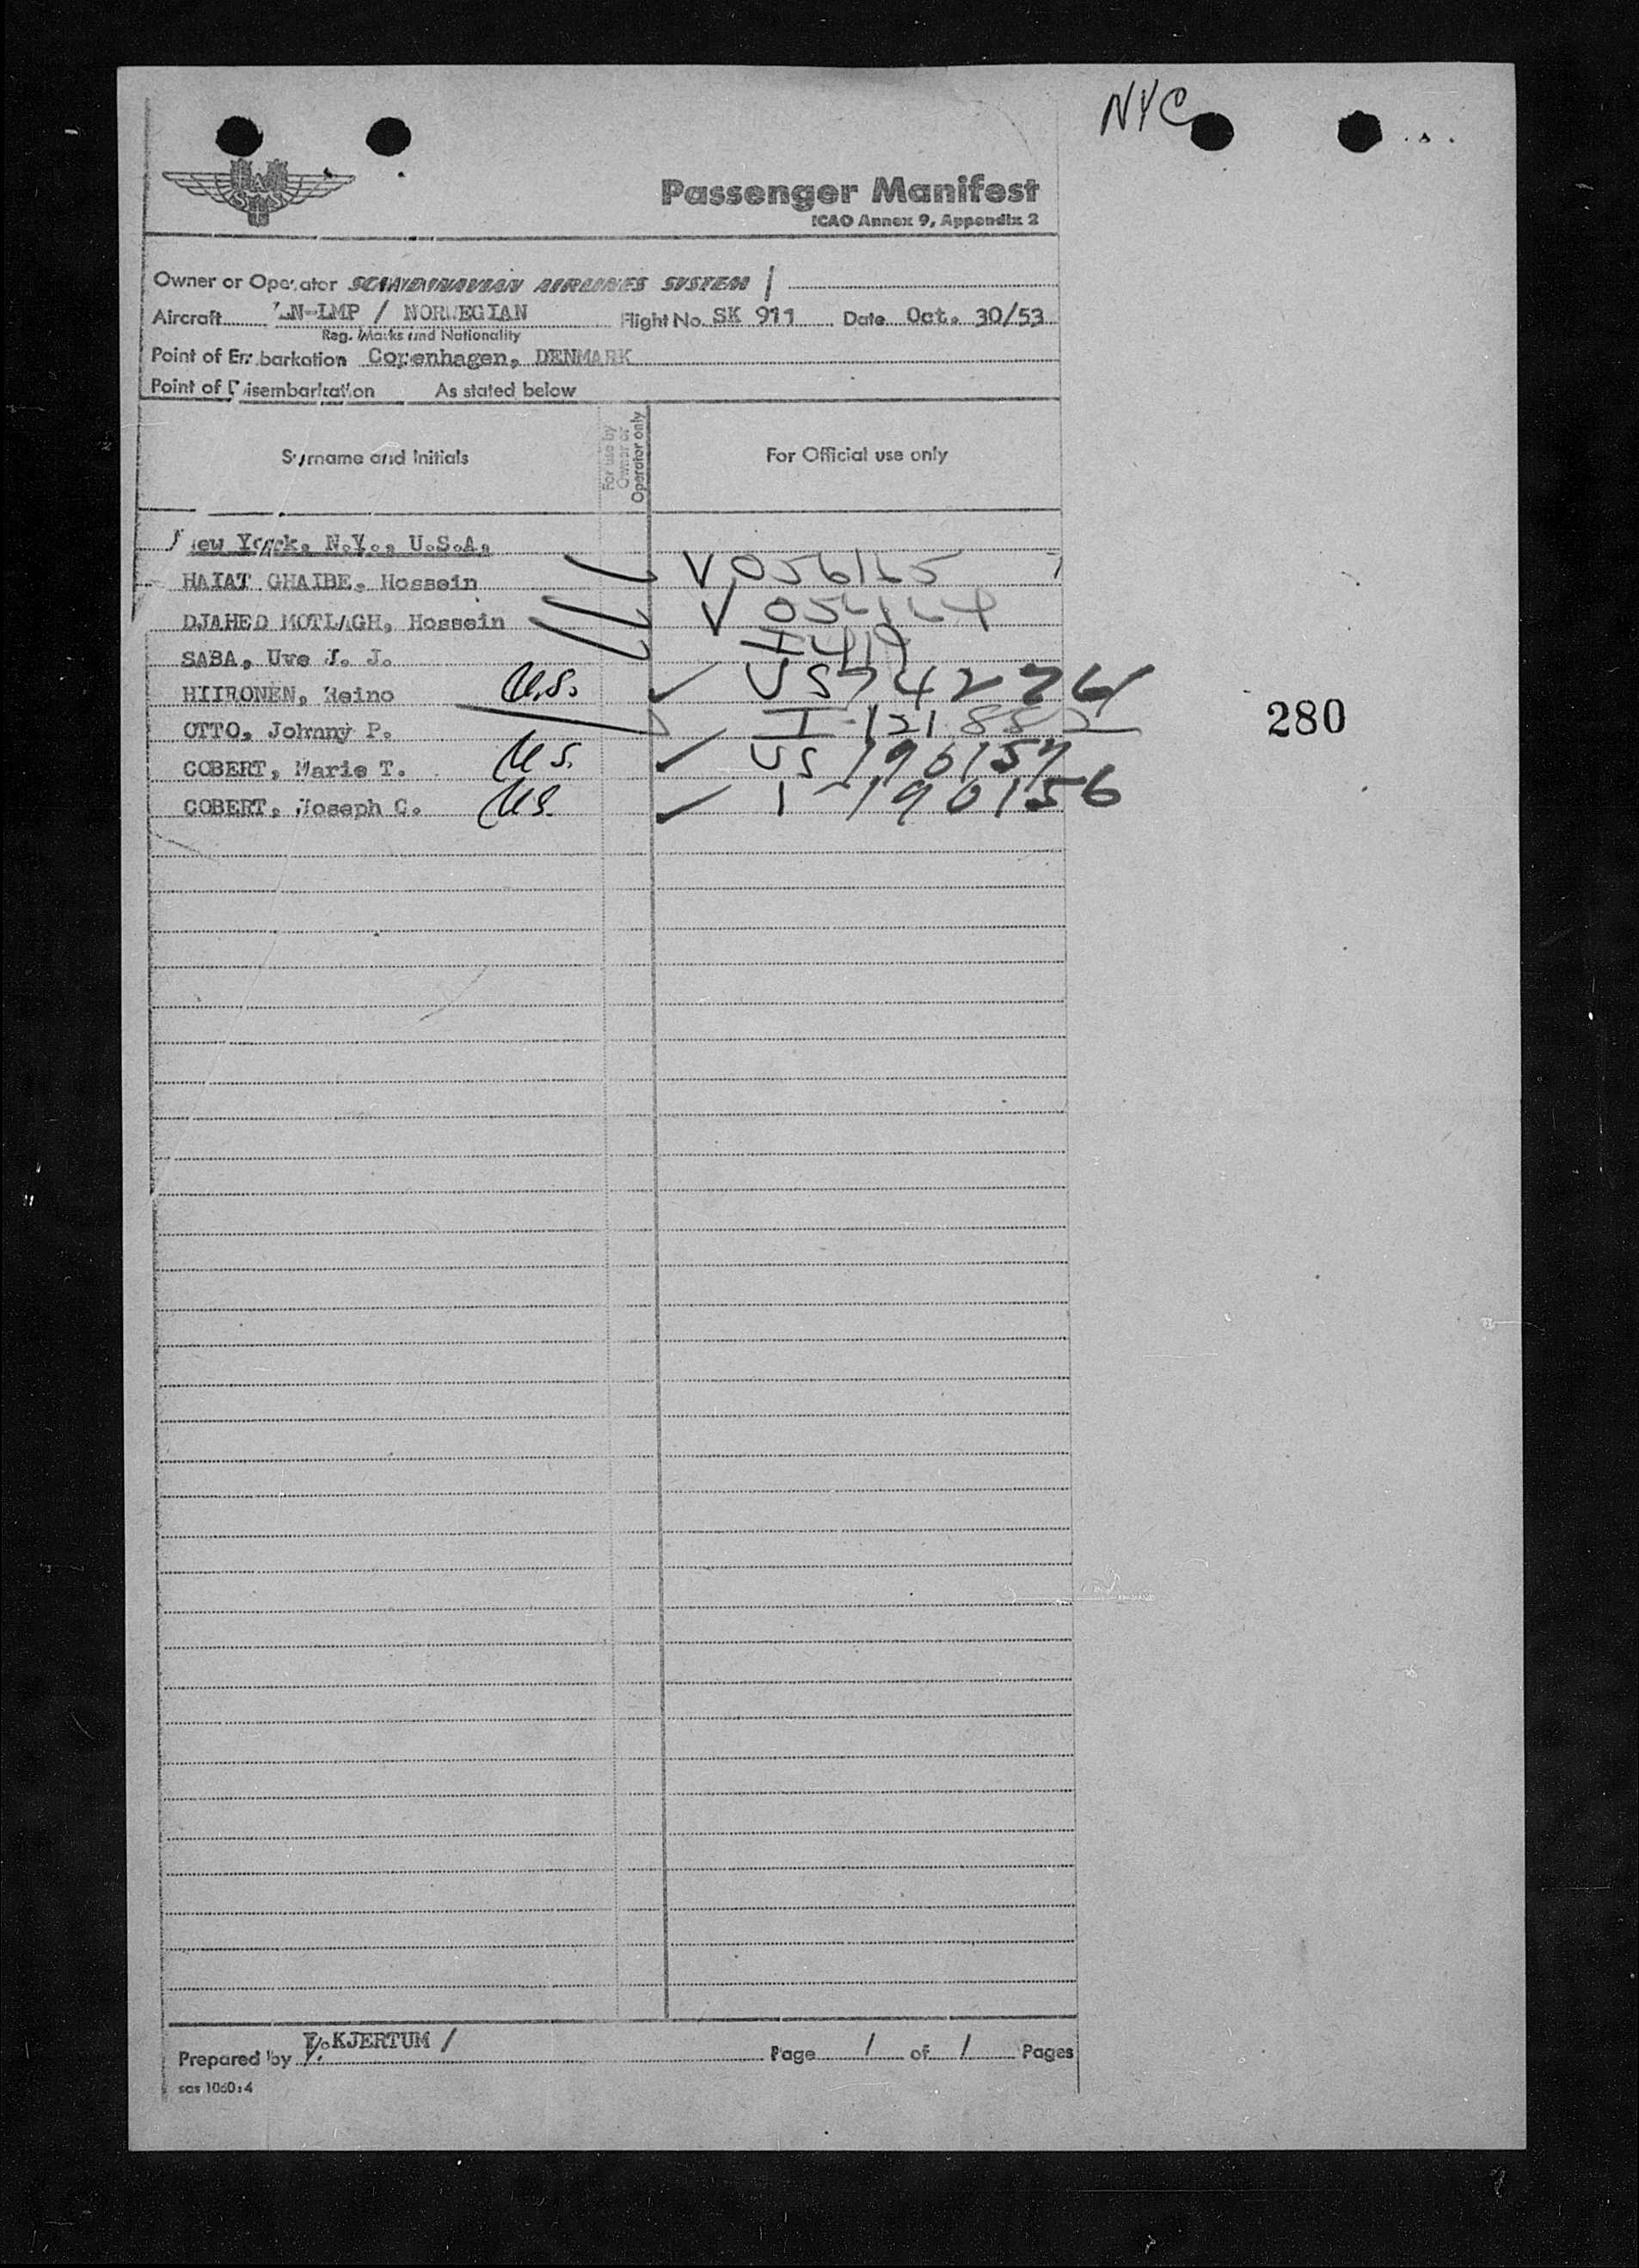 NYC
SAS
Passenger Manifest
ICAO Annex 9, Appendix 2
Owner or Operator SCANDINAVIAN AIRLINES SYSTEM /
Aircraft LN-LMP / NORWEGIAN Flight No. SK 911 Date Oct. 30/53
Reg. Marks and Nationality
Point of Embarkation Copenhagen, DENMARK
Point of Disembarkation As stated below
Surname and Initials For use by Owner or Operator only For Official use only
New Yorck, N.Y., U.S.A.
HAIAT GHAIBE, Hossein V 056165
DJAHED MOTLAGH, Hossein V
SABA, Uwe J. J.
HIIRONEN, Reino U.S. US 742276
OTTO, Johnny P. I-121 882
280
COBERT, Marie T. U.S. US 190157
COBERT, Joseph C. US. 190156
Prepared by KJERTUM / Page 1 of 1 Pages
sas 1060:4